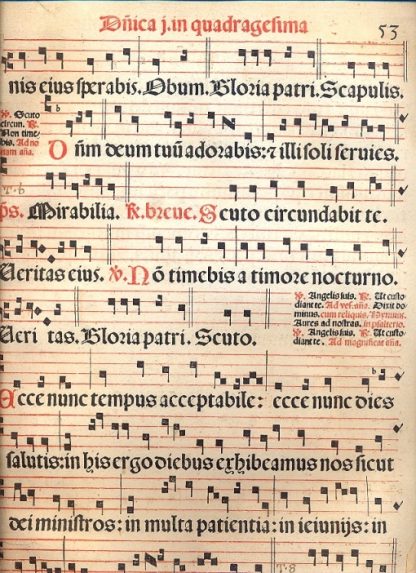 Dñica j. in quadragesima
53
nis eius sperabis. Obum. Gloria patri. Scapulis.
℣. Scuto
circun. ℟.
Non time-
bis. Ad no
nam aña.
Dñm deum tuũ adorabis: ⁊ illi soli seruies.
T. 6
ps. Mirabilia. ℟. breue. Scuto circundabit te.
Ueritas eius. ℣. Nõ timebis a timore nocturno.
℣. Angelis suis. ℟. Ut custo
diant te. Ad ves. aña. Dixit do
minus. cum reliquis. Hymnus.
Aures ad nostras. in psalterio.
℣. Angelis suis. ℟. Ut custo
diant te. Ad magnificat aña.
Ueri tas. Gloria patri. Scuto.
Ecce nunc tempus acceptabile: ecce nunc dies
salutis: in his ergo diebus exhibeamus nos sicut
dei ministros: in multa patientia: in ieiunijs: in
T. 8